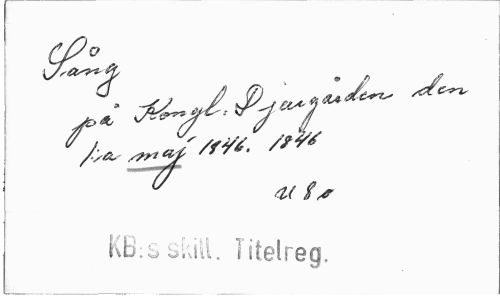 Sång
på Kongl. Djurgården den
1:a maj 1846. 1846
U 8o
KB:s skill. Titelreg.